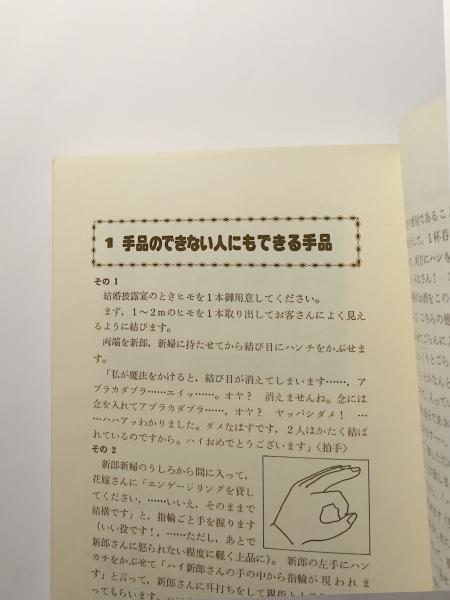 1 手品のできない人にもできる手品
その1
結婚披露宴のときヒモを1本御用意してください。
まず，1〜2mのヒモを1本取り出してお客さんによく見え
るように結びます。
両端を新郎，新婦に持たせてから結び目にハンチをかぶせま
す。
「私が魔法をかけると，結び目が消えてしまいます……，ア
ブラカダブラ……エイッ……。オヤ？ 消えませんね。念には
念を入れてアブラカダブラ……，オヤ？ ヤッパンダメ！ …
…ハハアッわかりました。ダメなはずです，2人はかたく結ば
れているのですから。ハイおめでとうございます」〈拍手〉
その2
新郎新婦のうしろから間に入って，
花嫁さんに「エンゲージリングを貸し
てください，……いいえ，そのままで
結構です」と，指輪ごと手を握ります
（いい役です！，……ただし，あとで
新郎さんに怒られない程度に軽く上品に）。 新郎の左手にハン
カチをかぶせて「ハイ新郎さんの手の中から指輪が現われま
す」と言って，新郎さんに耳打ちをして親指と
ってもらいます。